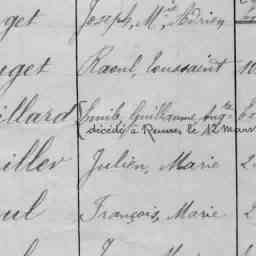 get Joseph, Mie Adrien
uget Raoul, Toussaint 10
illard Emile, Guillaume, Aug-te
(décédé à Rennes, le 12 mars
iller Julien, Marie 2
ul François, Marie 2